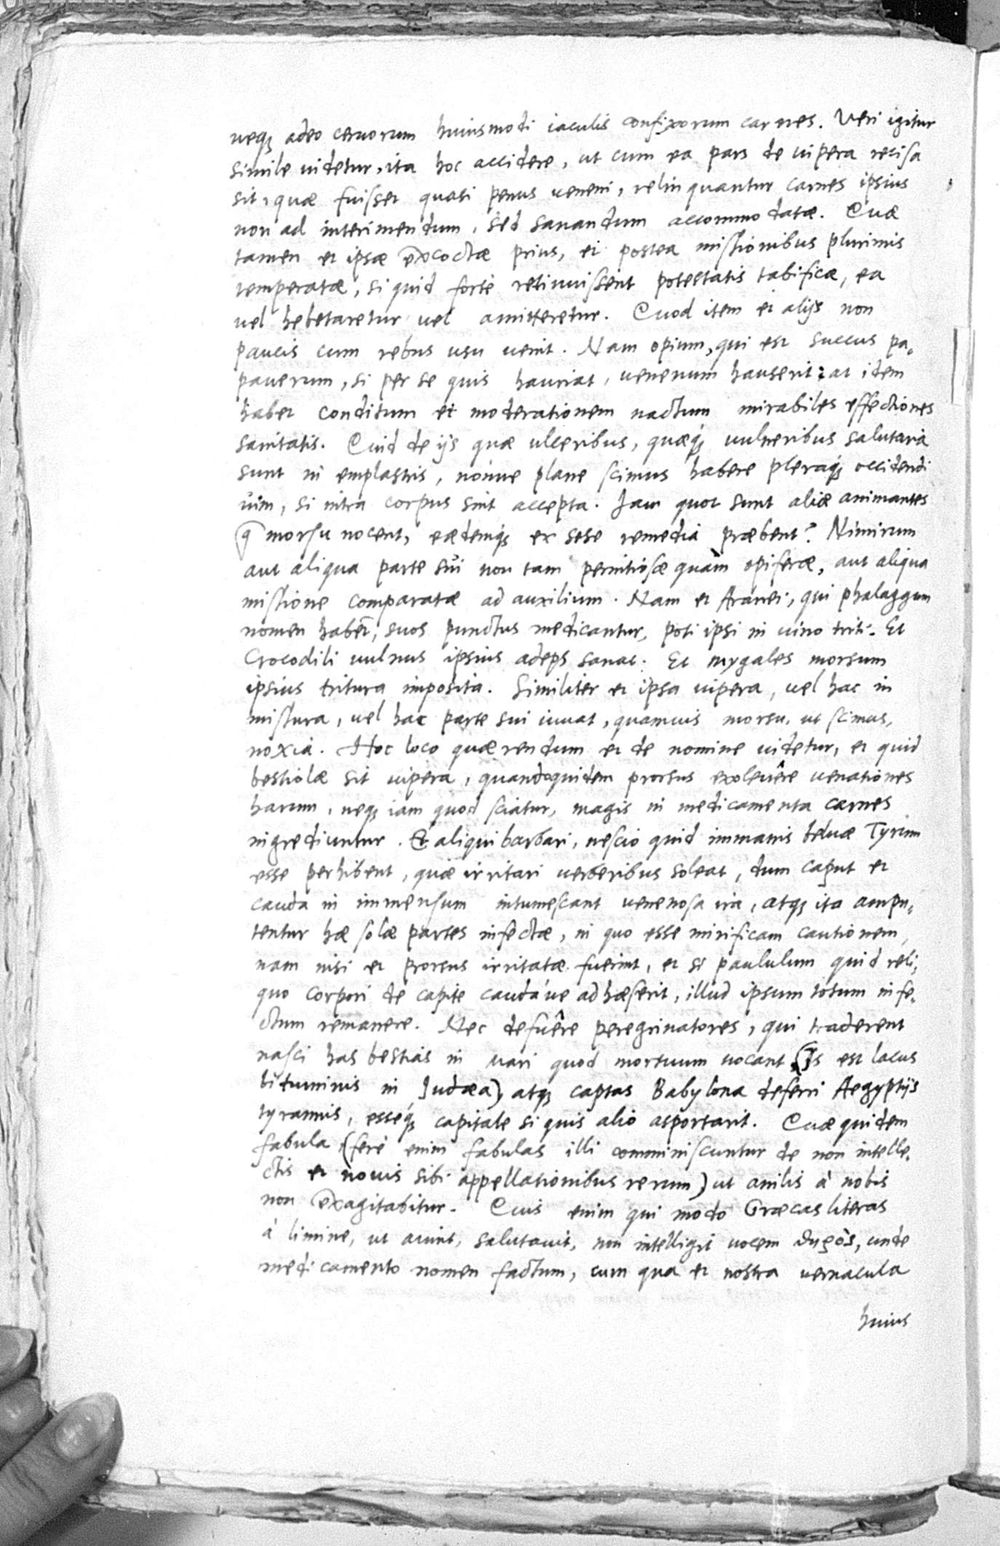 neq; adeo ceruorum huiusmodi iaculis confixorum carnes. Veri igitur
simile uidetur, ita hoc accidere, ut cum ea pars de uipera recisa
sit, quæ fuisset quasi penus ueneni, relinquantur carnes ipsius
non ad interimendum, sed sanandum accommodatæ. Quæ
tamen et ipsæ excoctæ prius, et postea mistionibus plurimis
temperatæ, si quid forte retinuissent potestatis tabificæ, ea
uel hebetaretur uel amitteretur. Quod item et alijs non
paucis cum rebus usu uenit. Nam opium, qui est succus pa,
pauerum, si per se quis hauriat, uenenum hauserit: at item
habet conditum et moderationem nactum mirabiles effectiones
sanitatis. Quid de ijs quæ ulceribus, quæq; uulneribus salutaria
sunt in emplastris, nonne plane scimus habere pleraq; occidendi
uim, si intra corpus sint accepta. Iam quot sunt aliæ animantes
q̃ morsu nocent, eædemq; ex sese remedia præbent? Nimirum
aut aliqua parte sui non tam pernitiosæ quàm opiferæ, aut aliqua
mistione comparatæ ad auxilium. Nam et Aranei, qui phalaggum
nomen habet, suos punctus medicantur, poti ipsi in uino triti. Et
Crocodili uulnus ipsius adeps sanat. Et mygales morsum
ipsius tritura imposita. Similiter et ipsa uipera, uel hac in
mistura, uel hac parte sui iuuat, quamuis morsu, ut scimus,
noxia. Hoc loco quærendum et de nomine uidetur, et quid
bestiolæ sit uipera, quandoquidem prorsus exoleuêre uenationes
harum, neq; iam quod sciatur, magis in medicamenta carnes
ingrediuntur. Et aliqui barbari, nescio quid immanis beluæ Tyrum
esse perhibent, quæ irritari uerberibus soleat, dum caput et
cauda in immensum intumescant uenenosa ira, atq; ita ampu,
tentur hæ solæ partes infectæ, in quo esse mirificam cautionem,
nam nisi et prorsus irritatæ fuerint, et si paululum quid reli,
quo corpori de capite caudáue adhæserit, illud ipsum totum infe,
ctum remanere. Nec defuêre peregrinatores, qui traderent
nasci has bestias in mari quod mortuum uocant (Is est lacus
bituminis in Iudæa), atq; captas Babylona deferri Aegyptijs
tyrannis, esseq; capitale si quis alio asportarit. Quæ quidem
fabula (ferè enim fabulas illi comminiscuntur de non intelle,
ctis et nouis sibi appellationibus rerum) ut anilis à nobis
non exagitabitur. Quis enim qui modo Græcas literas
à limine, ut aiunt, salutauit, non intelligit uocem, unde
medicamento nomen factum, cum qua et nostra uernacula
huius